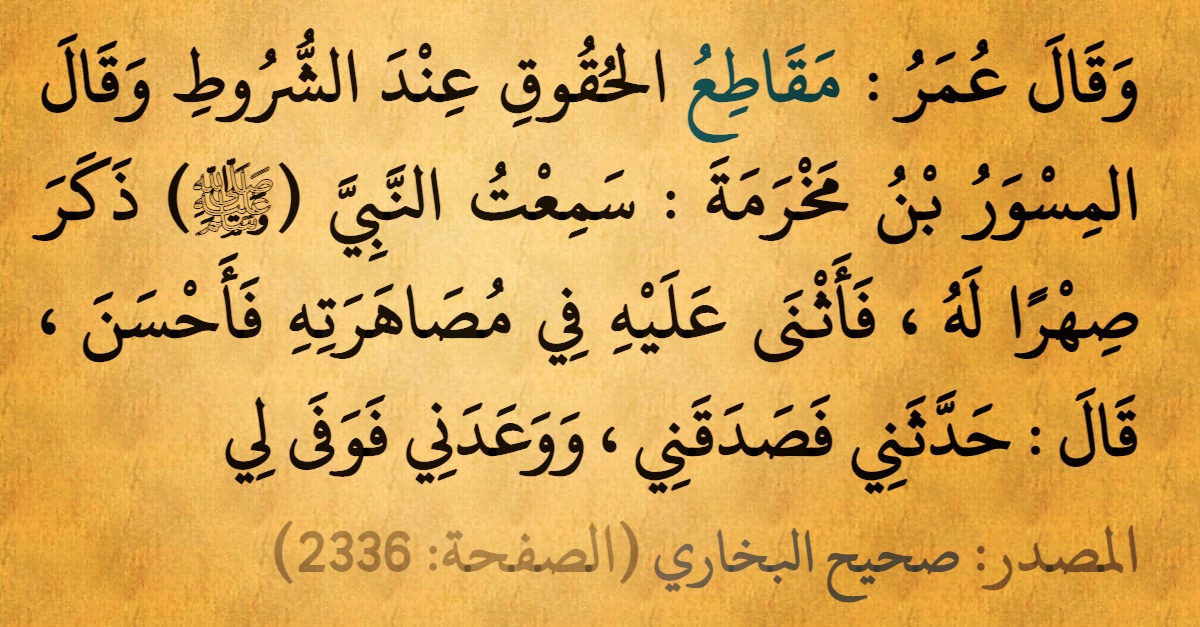 وَقَالَ عُمَرُ : مَقَاطِعُ الحُقُوقِ عِنْدَ الشُّرُوطِ وَقَالَ
المِسْوَرُ بْنُ مَخْرَمَةَ : سَمِعْتُ النَّبِيَّ (ﷺ) ذَكَرَ
صِهْرًا لَهُ ، فَأَثْنَى عَلَيْهِ فِي مُصَاهَرَتِهِ فَأَحْسَنَ ،
قَالَ : حَدَّثَنِي فَصَدَقَنِي ، وَوَعَدَنِي فَوَفَى لِي
المصدر: صحيح البخاري (الصفحة: 2336)